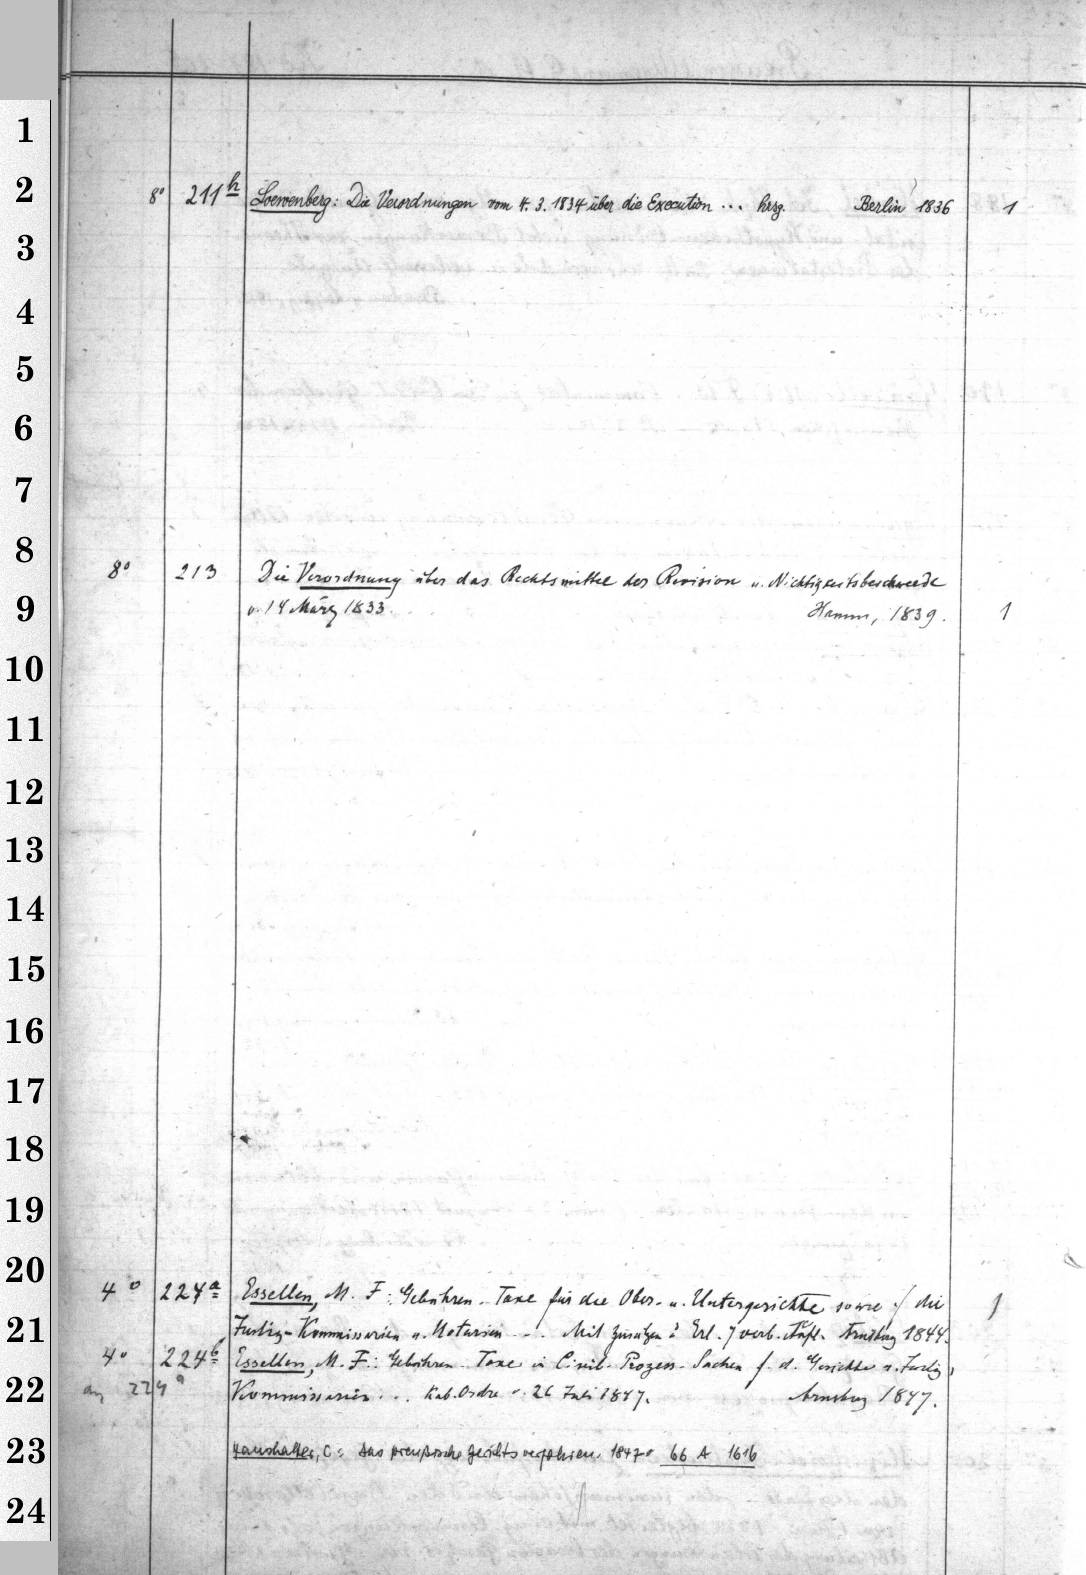 1
2
8° 211h Loewenberg: Die Verordnungen vom 4. 3. 1834 über die Execution ... hrsg. Berlin 1836 1
3
4
5
6
7
8
8° 213 Die Verordnung über das Rechtsmittel der Revision u. Nichtigkeitsbeschwerde
9
v. 14 März 1833. Hamm, 1839. 1
10
11
12
13
14
15
16
17
18
19
20
4° 224a Essellen, M. F.: Gebühren-Taxe für die Ober- u. Untergerichte sowie f. die 1
21
Justiz-Kommissarien u. Notarien ... Mit Zusätzen u. Erl. 7 verb. Aufl. Arnsberg 1844.
4° 224b Essellen, M. F.: Gebühren-Taxe in Civil-Prozess-Sachen f. d. Gerichte u. Justiz-
22
an 224a Kommissarien ... Kab. Ordre v. 26 Juli 1847. Arnsberg 1847.
23
Haushalter, C.: Das preußische Gerichtsverfahren. 1847 66 A 1616
24